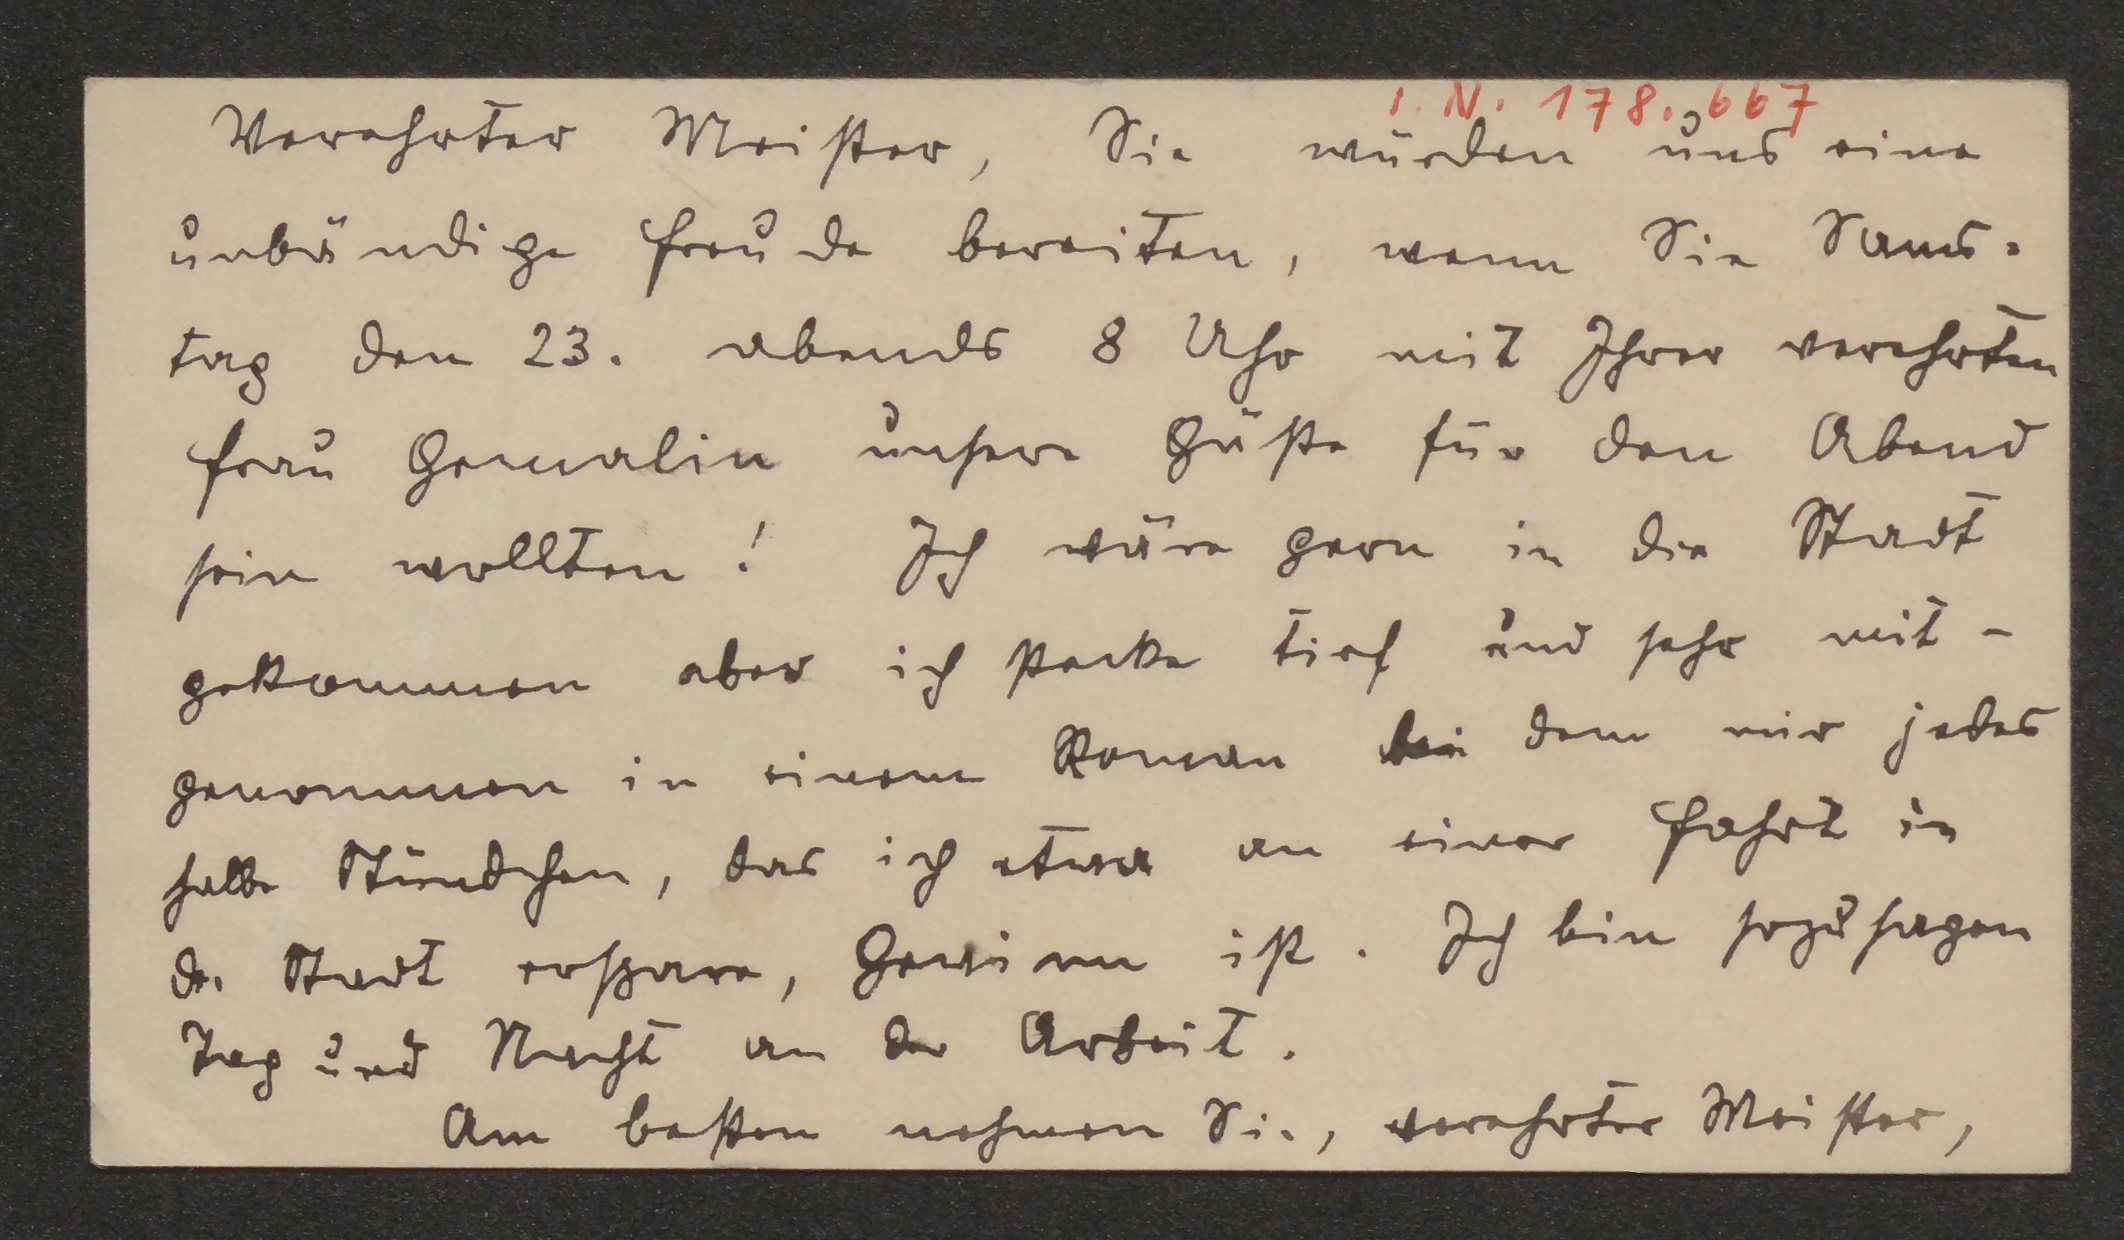 I. N. 178.667
Verehrter Meister, Sie würden uns eine
unbändige Freude bereiten, wenn Sie Sams-
tag den 23. abends 8 Uhr mit Ihrer verehrten
Frau Gemalin unsere Gäste für den Abend
sein wollten! Ich wäre gern in die Stadt
gekommen aber ich stecke tief und sehr mit-
genommen in einem Roman bei dem mir jedes
halbe Stündchen, das ich etwa an einer Fahrt in
die Stadt erspare, Gewinn ist. Ich bin sozusagen
Tag und Nacht an der Arbeit.
Am besten nehmen Sie, verehrter Meister,